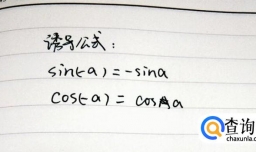 诱导公式：
sin(-a)=-sina
cos(-a)=cosa
查询
chaxunla.c